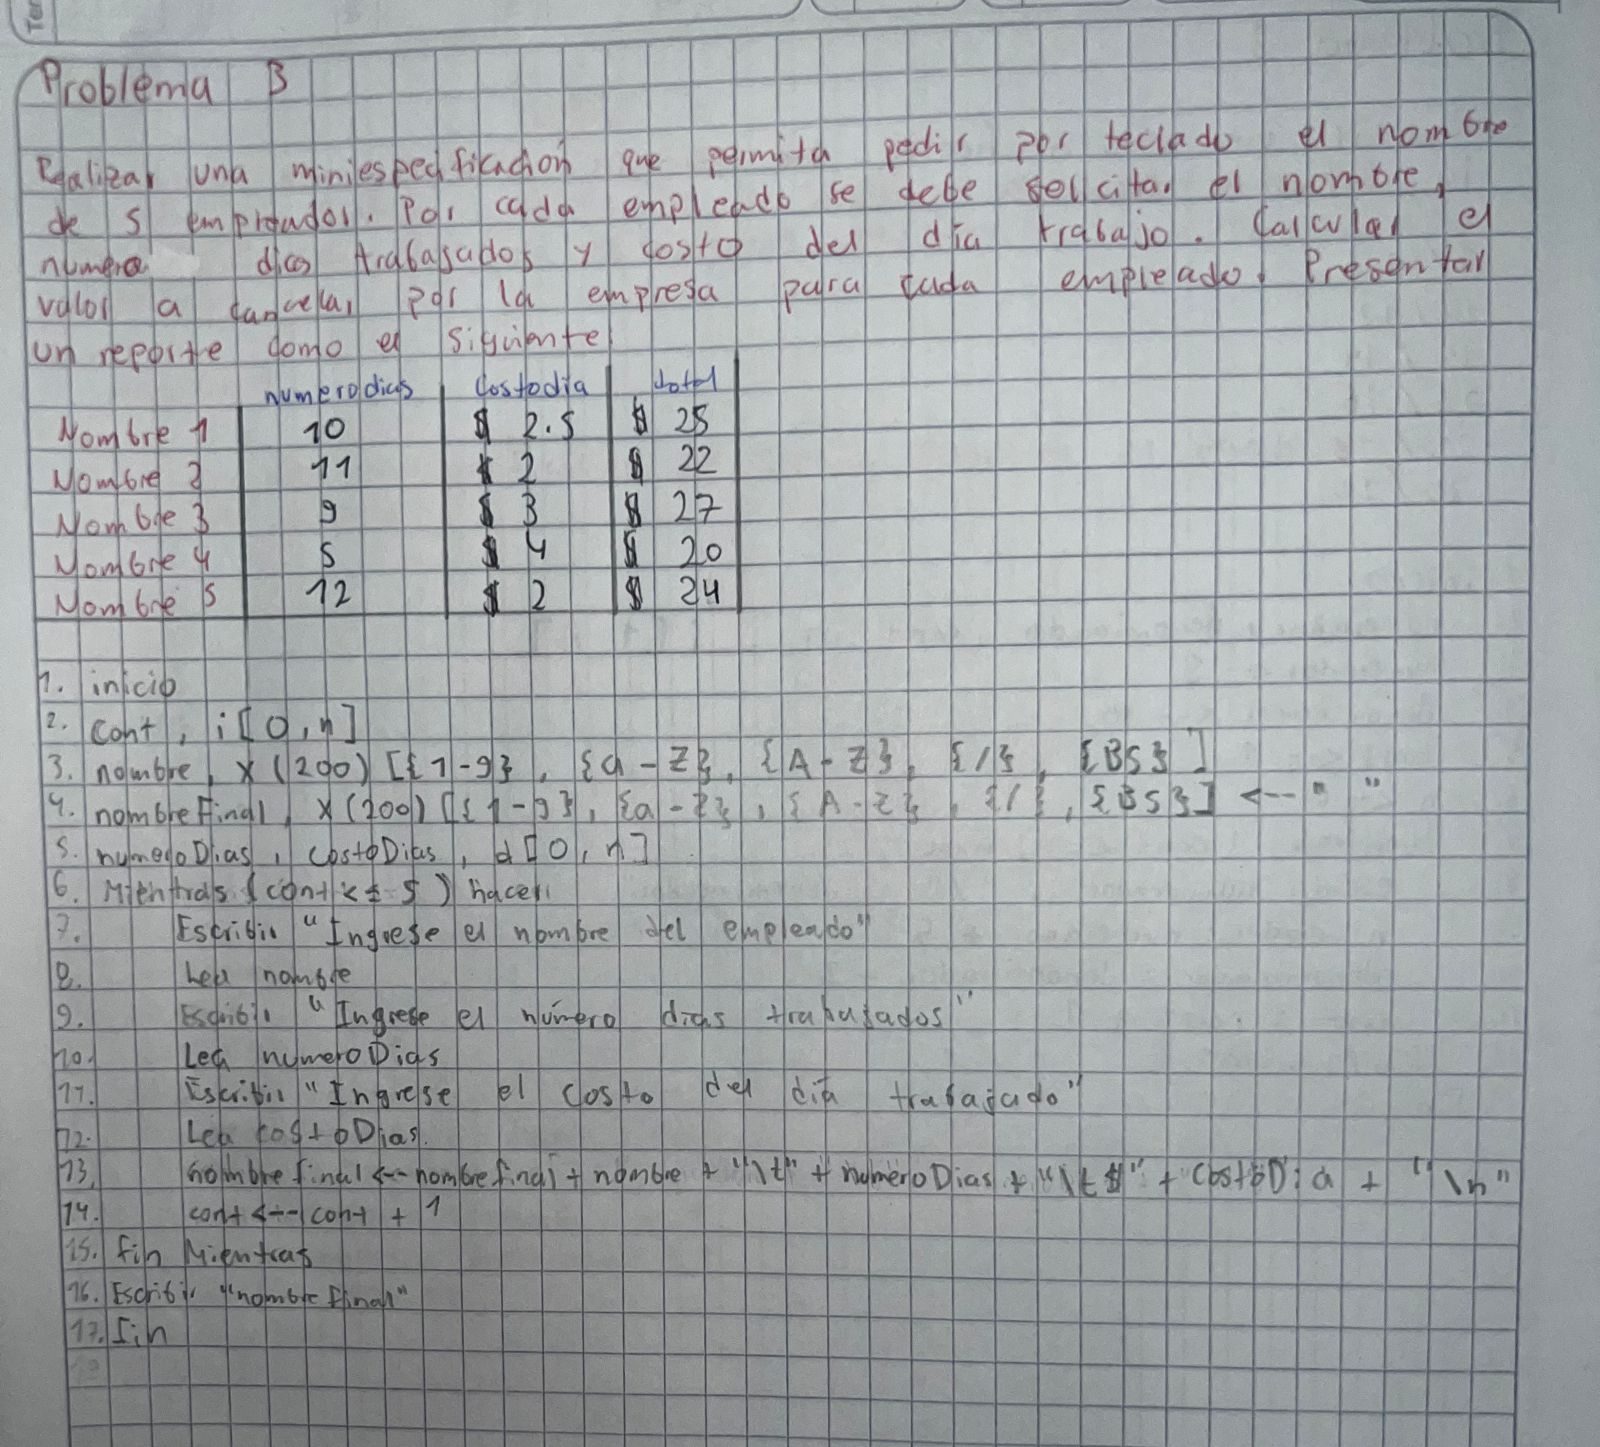 Problema B
Realizar una miniespecificación que permita pedir por teclado el nombre
de 5 empleados. Por cada empleado se debe solicitar el nombre,
numero dias trabajados y costo del día trabajo. Calcular el
valor a cancelar por la empresa para cada empleado. Presentar
un reporte como el siguiente
numero dias costodia total
Nombre 1 10 $ 2.5 $ 25
Nombre 2 11 $ 2 $ 22
Nombre 3 9 $ 3 $ 27
Nombre 4 5 $ 4 $ 20
Nombre 5 12 $ 2 $ 24
1. inicio
2. cont, i[0,n]
3. nombre, x(200) [{1-9}, {a-z}, {A-Z}, {/}, {BS}]
4. nombreFinal, x(200) [{1-9}, {a-z}, {A-Z}, {/}, {BS}] <-- " "
5. numeroDias, costoDias, d[0,n]
6. Mientras (cont <= 5) hacer:
7. Escribir "Ingrese el nombre del empleado"
8. Lea nombre
9. Escribir "Ingrese el número dias trabajados"
10. Lea numeroDias
11. Escribir "Ingrese el costo del día trabajado"
12. Lea costoDias.
13. nombrefinal <-- nombrefinal + nombre + "\t" + numeroDias + "\t $" + CostoDia + "\n"
14. cont <-- cont + 1
15. fin Mientras
16. Escribir "nombre final"
17. fin